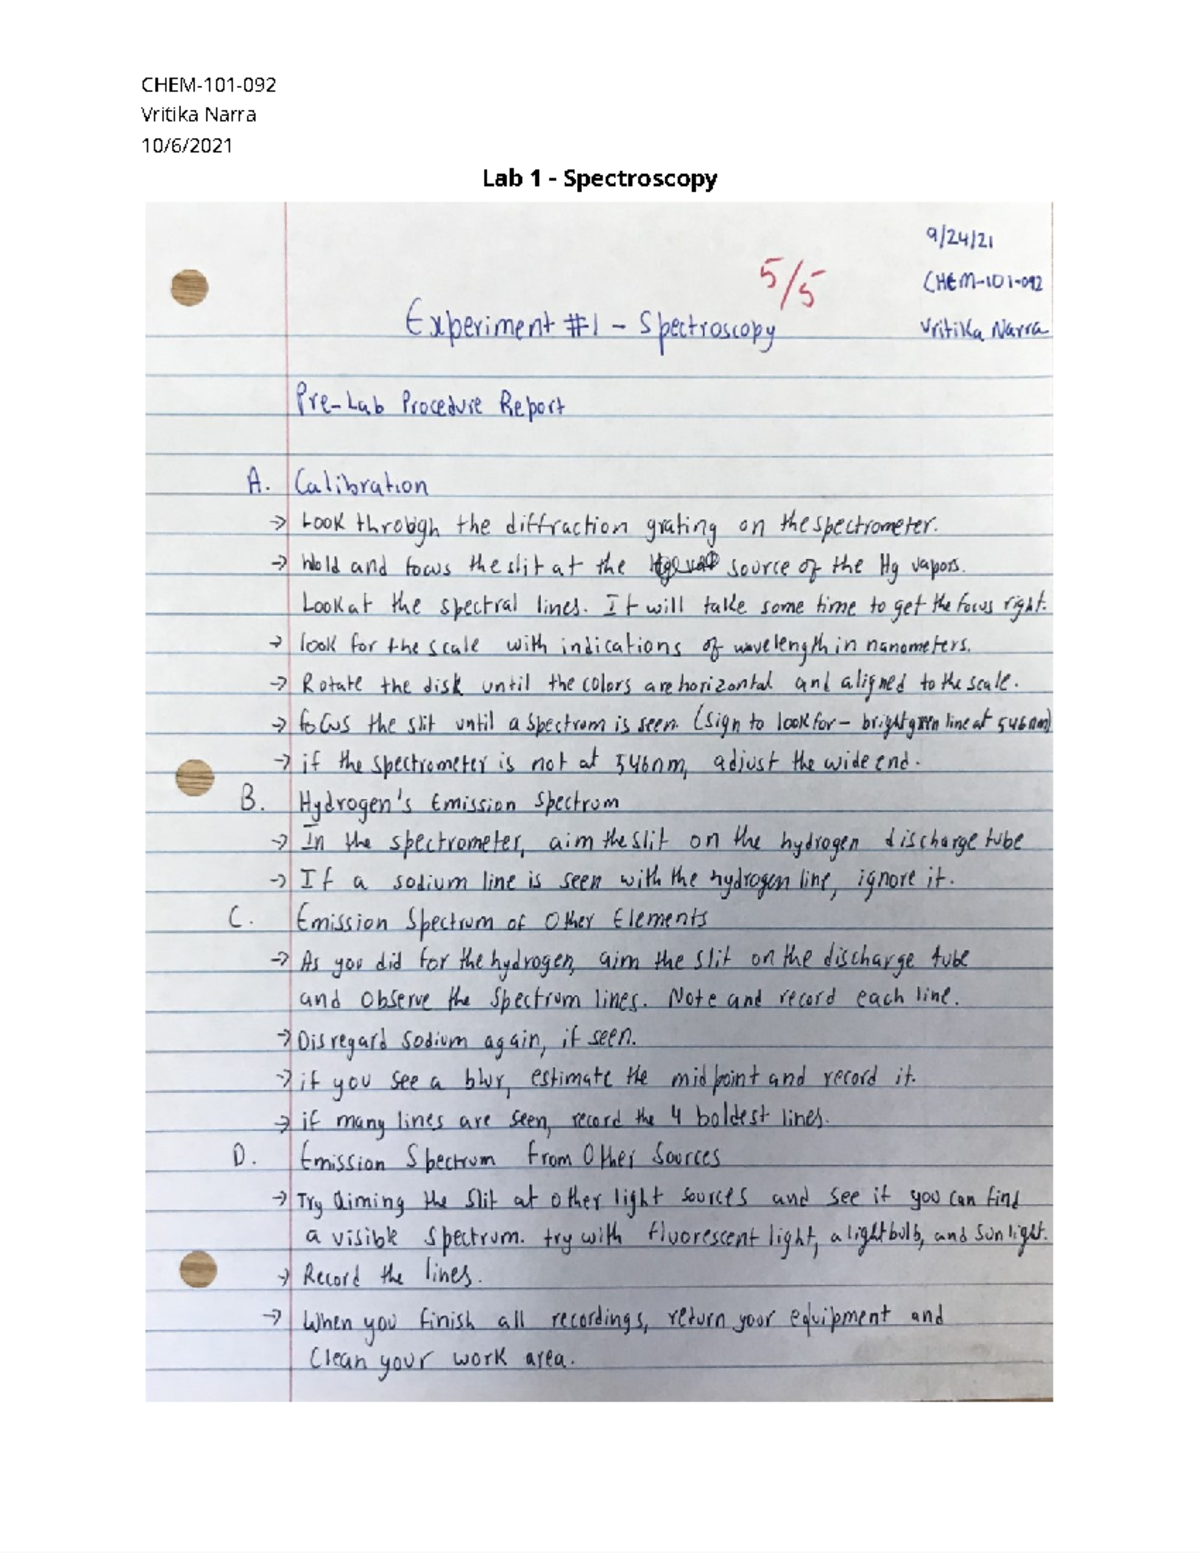 CHEM-101-092
Vritika Narra
10/6/2021
Lab 1 - Spectroscopy
9/24/21
5/5
CHEM-101-092
Experiment #1 - Spectroscopy
Vritika Narra
Pre-Lab Procedure Report
A. Calibration
→ Look through the diffraction grating on the spectrometer.
→ Hold and focus the slit at the source of the Hg vapors.
Look at the spectral lines. It will take some time to get the focus right.
→ look for the scale with indications of wavelength in nanometers.
→ Rotate the disk until the colors are horizontal and aligned to the scale.
→ focus the slit until a spectrum is seen. (Sign to look for - bright green line at 546nm)
→ if the spectrometer is not at 546nm, adjust the wide end.
B. Hydrogen's Emission Spectrum
→ In the spectrometer, aim the slit on the hydrogen discharge tube
→ If a sodium line is seen with the hydrogen line, ignore it.
C. Emission Spectrum of Other Elements
→ As you did for the hydrogen, aim the slit on the discharge tube
and observe the spectrum lines. Note and record each line.
→ Disregard sodium again, if seen.
→ if you see a blur, estimate the midpoint and record it.
→ if many lines are seen, record the 4 boldest lines.
D. Emission Spectrum from Other Sources
→ Try aiming the slit at other light sources and see if you can find
a visible spectrum. try with fluorescent light, a lightbulb, and sunlight.
→ Record the lines.
→ When you finish all recordings, return your equipment and
Clean your work area.